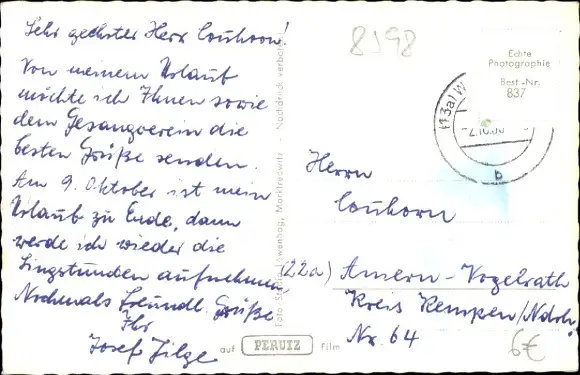 Sehr geehrter Herr Couhorn!
Von meinem Urlaub
möchte ich Ihnen sowie
dem Gesangverein die
besten Grüße senden.
Am 9. Oktober ist mein
Urlaub zu Ende, dann
werde ich wieder die
Singstunden aufnehmen
Nochmals freundl. Grüße
Ihr
Josef Jilge
8598
Echte
Photographie
Best.-Nr.
837
(13a) W
b
Herrn
Couhorn
(22a) Amern-Vogelrath
Kreis Kempen/Ndrh.
Nr. 64
6€
Löwenhag, Marktredwitz - Nachdruck verboten
auf PERUTZ Film